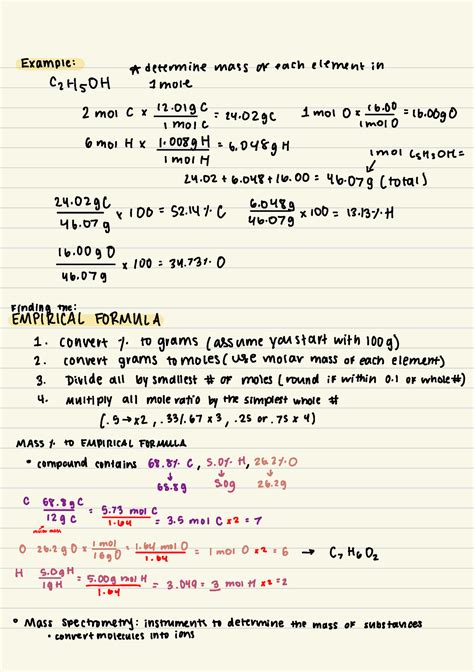 Example: * determine mass of each element in
C2H5OH 1 mole
2 mol C x 12.01g C / 1 mol C = 24.02g C 1 mol O x 16.00 / 1 mol O = 16.00g O
6 mol H x 1.008g H / 1 mol H = 6.048g H
1 mol C2H5OH =
24.02 + 6.048 + 16.00 = 46.07g (total)
24.02g C / 46.07g x 100 = 52.14% C 6.048g / 46.07g x 100 = 13.13% H
16.00g O / 46.07g x 100 = 34.73% O
Finding the:
EMPIRICAL FORMULA
1. convert % to grams (assume you start with 100g)
2. convert grams to moles (use molar mass of each element)
3. Divide all by smallest # of moles (round if within 0.1 of whole #)
4. Multiply all mole ratio by the simplest whole #
(.5 → x2 , .33/.67 x 3 , .25 or .75 x 4)
MASS % TO EMPIRICAL FORMULA
• compound contains 68.8% C, 5.0% H, 26.2% O
↓ ↓ ↓
68.8g 5.0g 26.2g
C 68.8g C / 12g C = 5.73 mol C / 1.64 = 3.5 mol C x2 = 7
molar mass
O 26.2g O x 1 mol / 16g O = 1.64 mol O / 1.64 = 1 mol O x2 = 6 → C7H6O2
H 5.0g H / 1g H = 5.00g mol H / 1.64 = 3.049 = 3 mol H x2 = 2
• Mass Spectrometry: instruments to determine the mass of substances
• convert molecules into ions